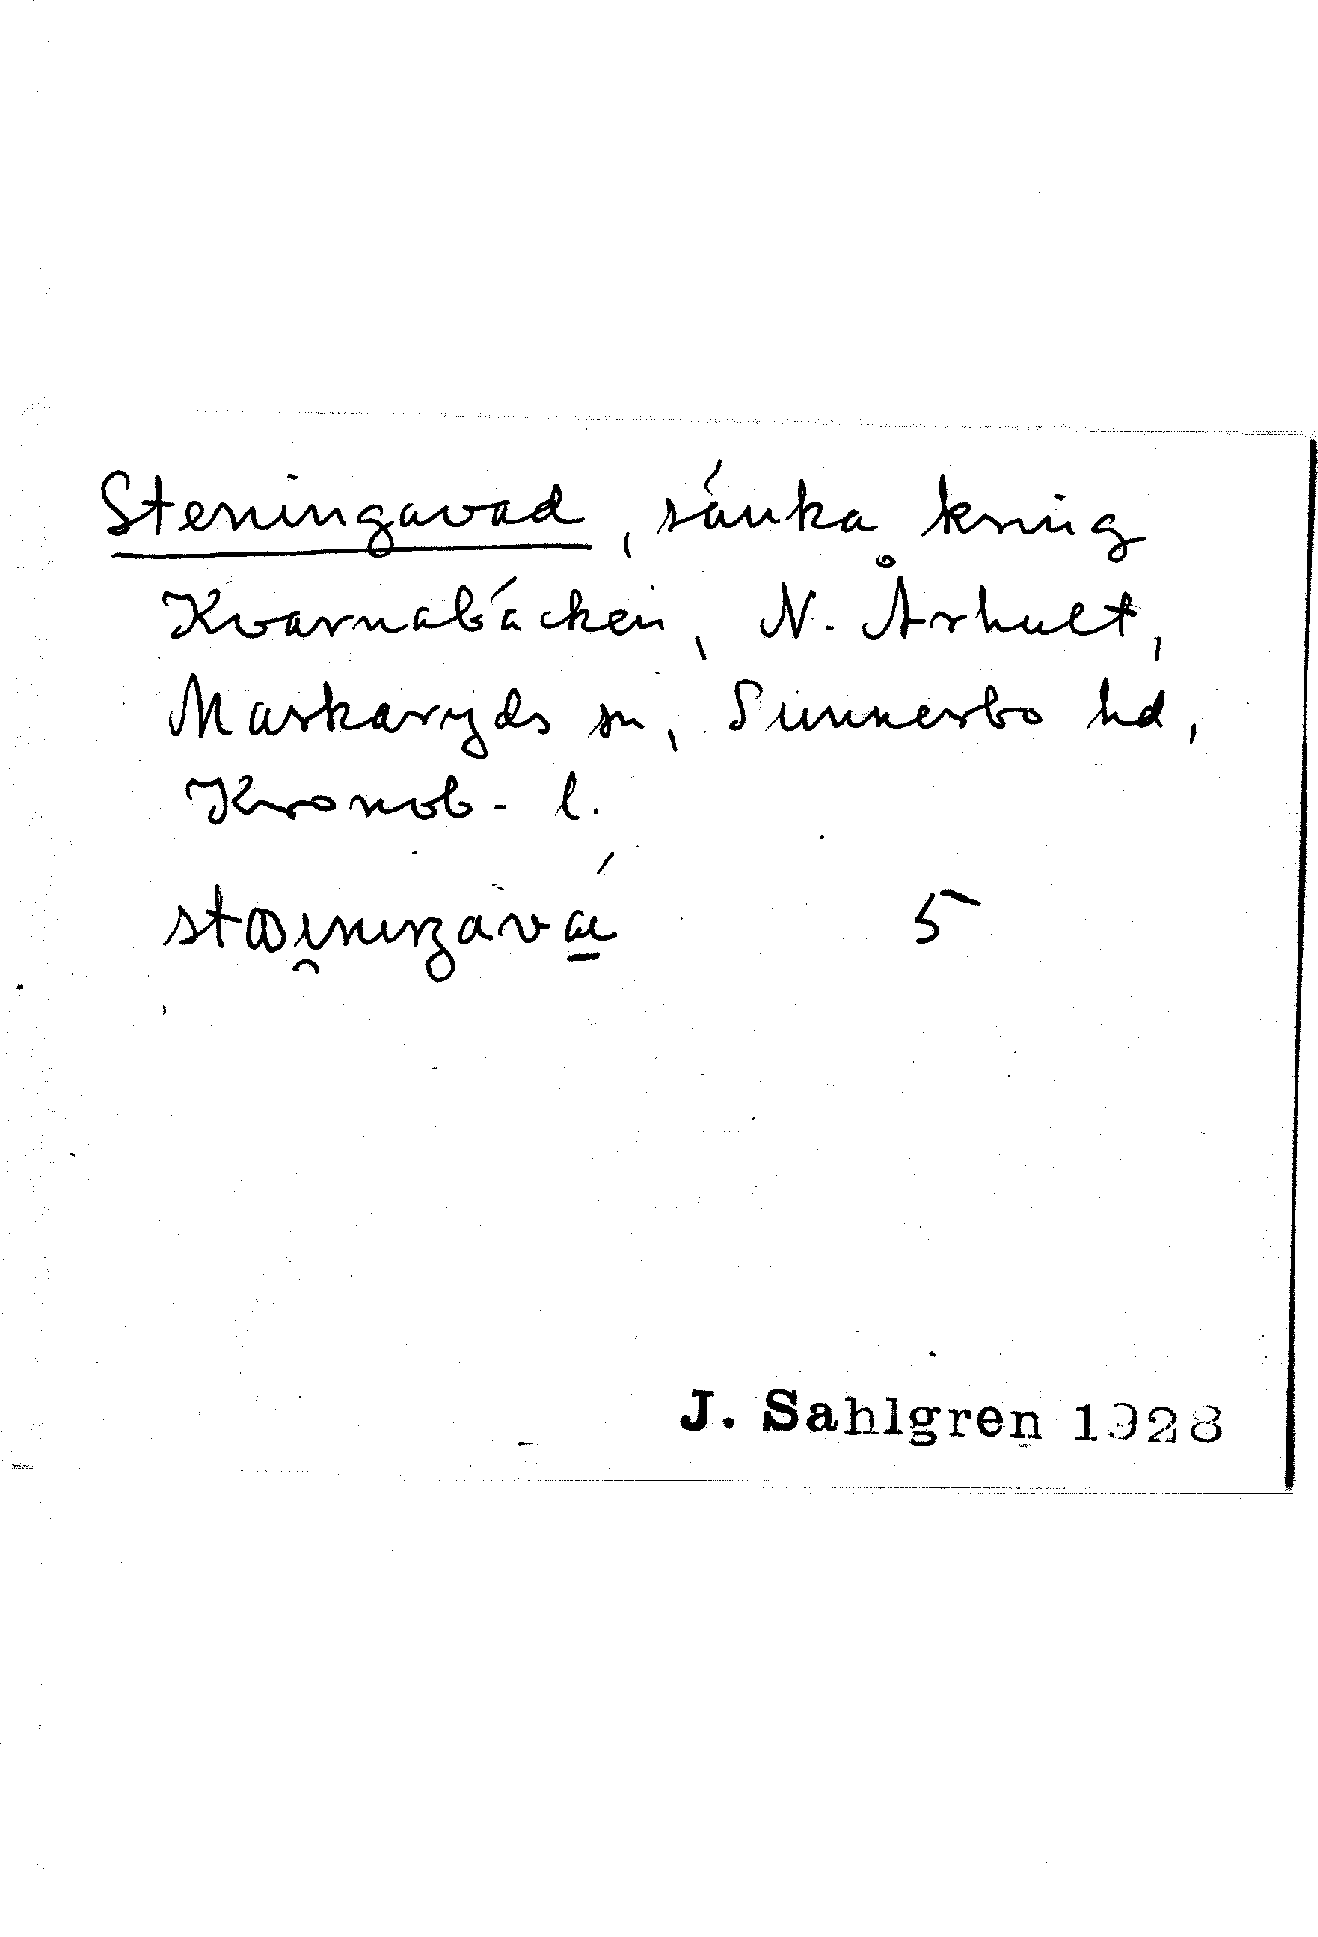 Steningavad, sänka kring
Kvarnabäcken, N. Århult,
Markaryds sn, Sunnerbo hd,
Kronob. l.
5
J. Sahlgren 1928